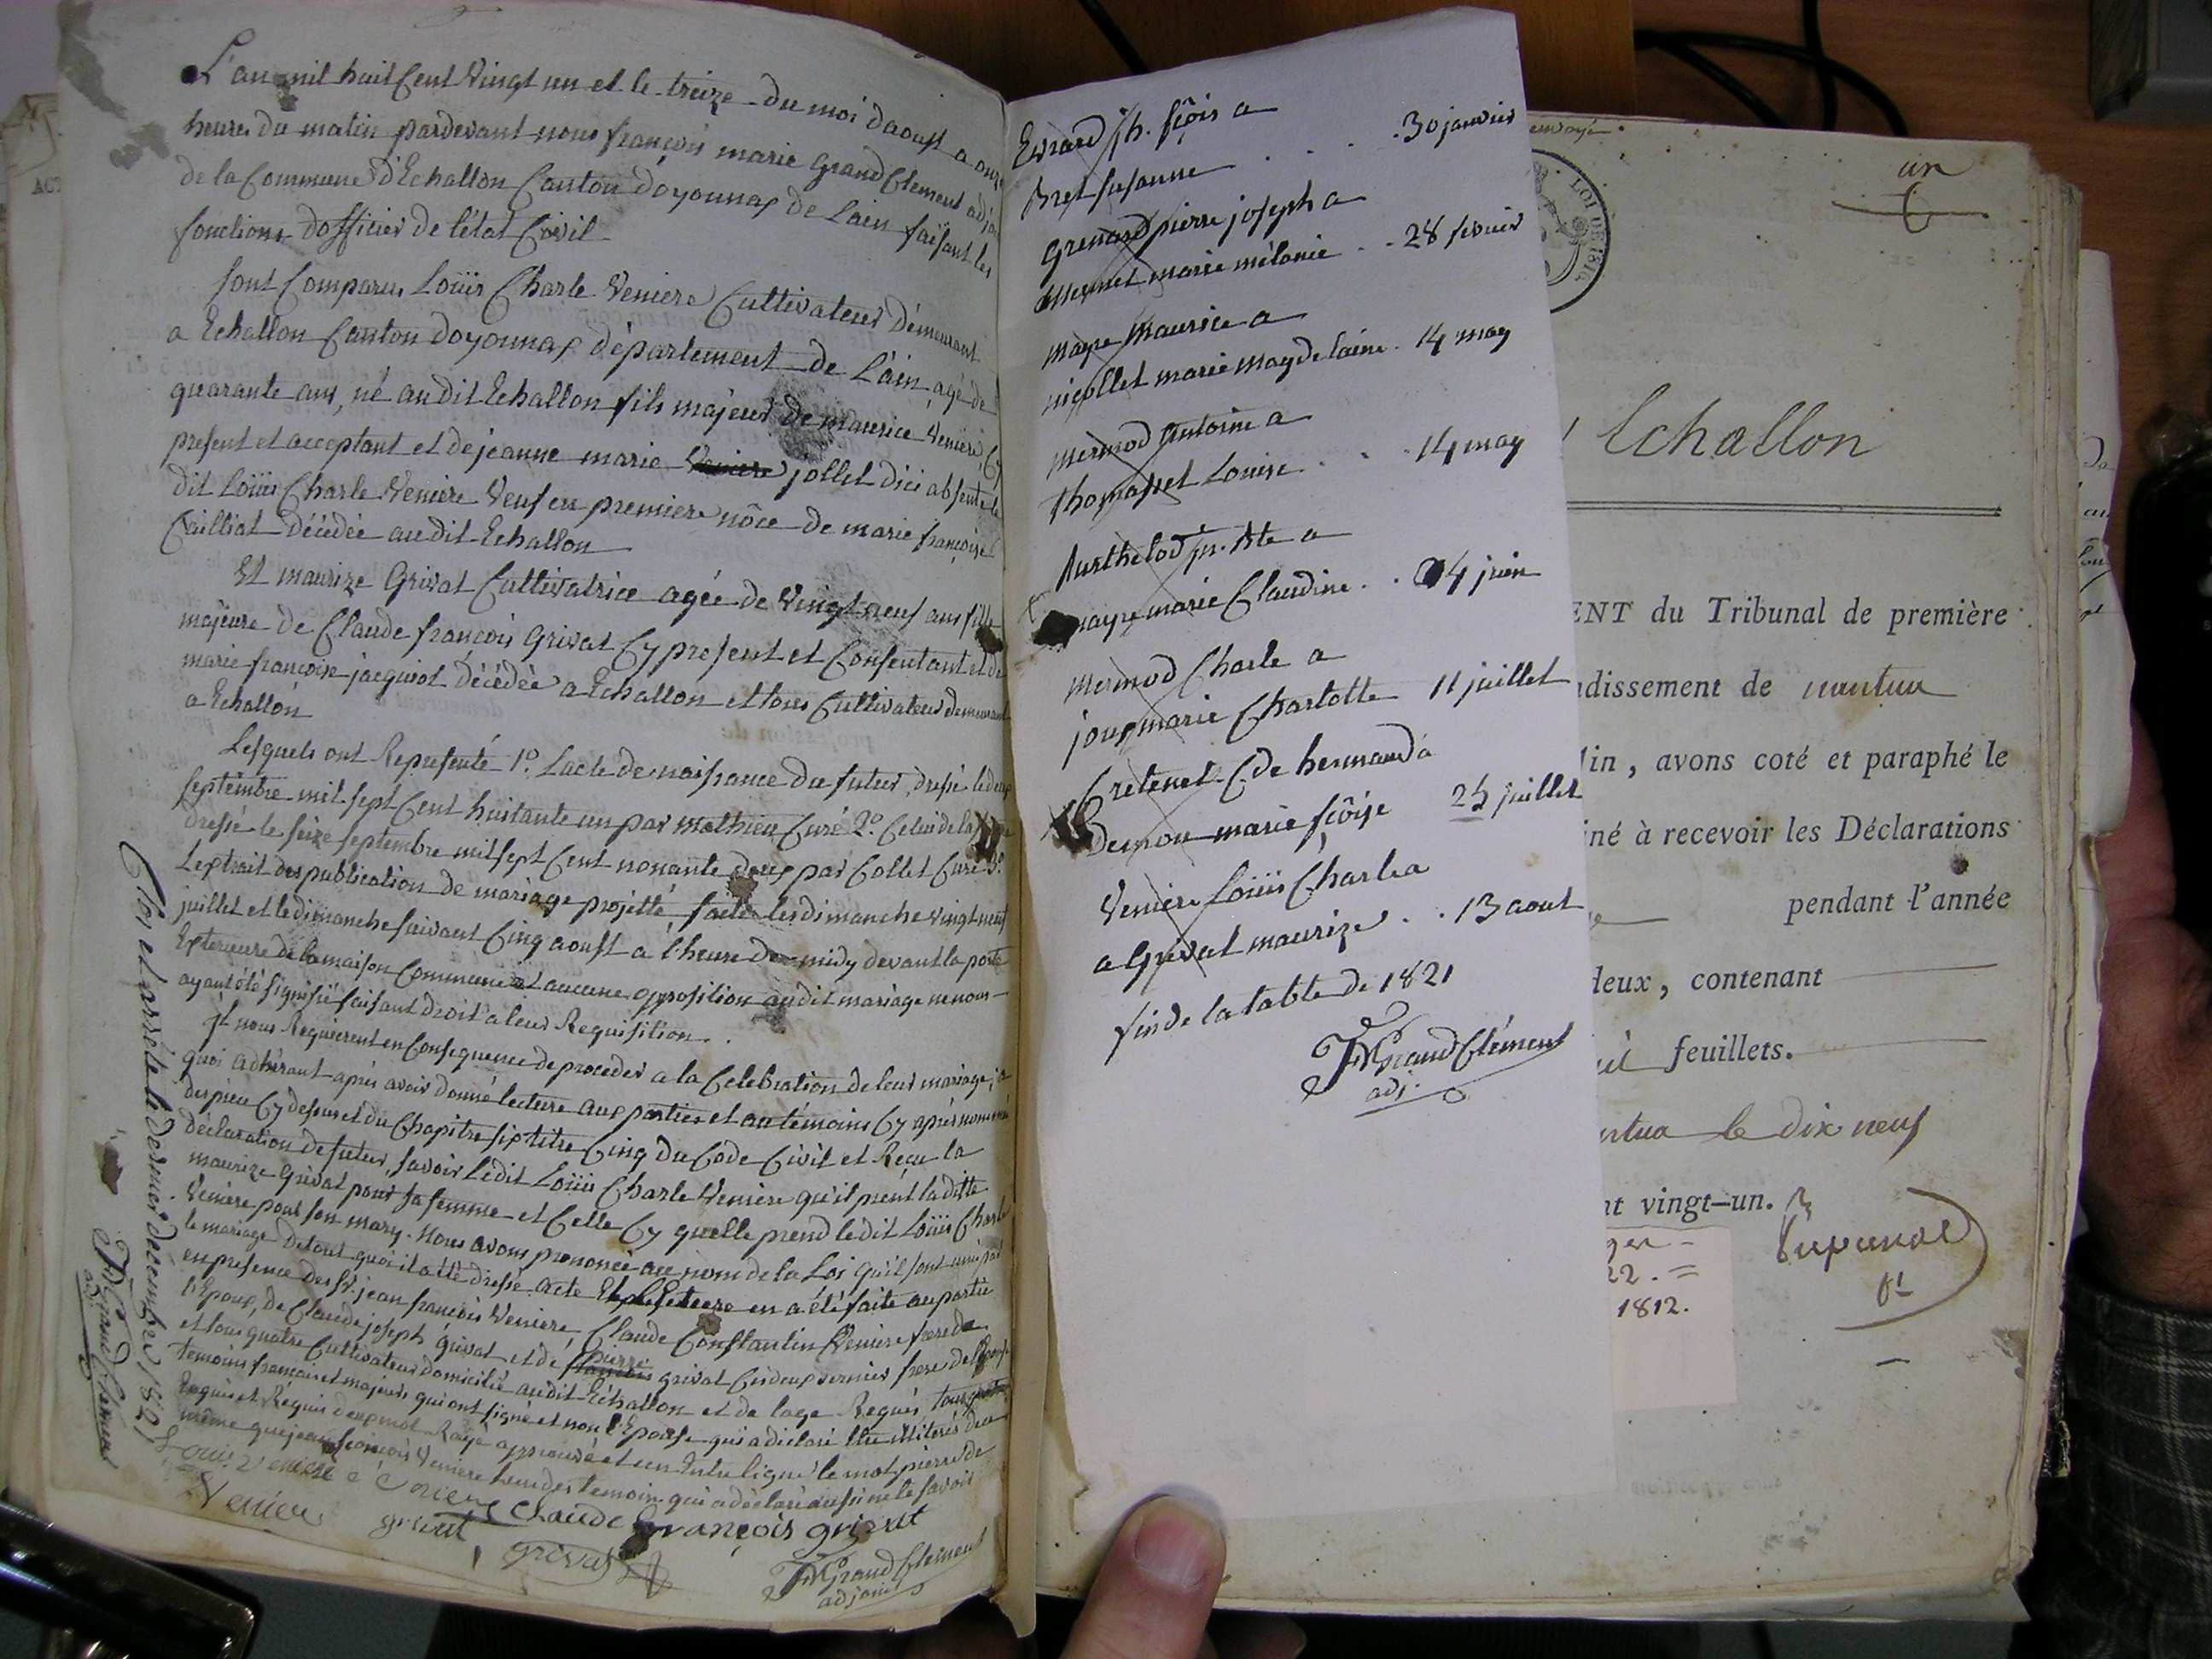 L'an mil huit Cent Vingt un et le treize du moi daoust a onze
heures du matin pardevant nous françois marie Grand Clement adjoint
de la Commune d'Echallon Canton doyonnax de Lain faisant les
fonctions dofficier de l'état Civil
sont Comparus Loüis Charle Veniere Cultivateur démeurant
a Echallon Canton doyonnax département de L'ain, agé de
quarante ans, né au dit Echallon fils majeur de maurice Veniere, Cy
present et acceptant et de jeanne marie jollet dici absente le
dit Loüis Charle Veniere Veuf en premiere nôce de marie françoise
Cailliat décédée au dit Echallon
Et maurize Grivat Cultivatrice agée de Vingt neuf ans fille
majeure de Claude françois Grivat Cy present et Consentant et de
marie françoise jacquiot décédée a Echallon et tous Cultivateur demeurant
a Echallon
Lesquels ont Representé 1º. Lacte de naissance du futur, dressé le deux
septembre mil sept Cent huitante un par mathieu Curé 2º. Celui de la
dressé le seize septembre mil sept Cent nonante deux par Collet Curé 3º.
Lextrait des publication de mariage projetté faites les dimanche vingt neuf
juillet et le dimanche suivant Cinq aoust a l'heure de midy devant la porte
Exterieure de la maison Commune et aucune opposition audit mariage ne nous
ayant été signifié faisant droit a leur Requisition.
Il nous Requierent en Consequence de proceder a la Celebration de leur mariage, a
quoi adhérant aprés avoir donné lecture aux parties et au témoins Cy aprés nommé
des piece Cy dessus et du Chapitre six titre Cinq du Code Civil et Reçu la
déclaration de futur, savoir Ledit Loüis Charle Veniere qu'il prent la ditte
maurize Grivat pour sa femme et Celle Cy quelle prend le dit Loüis Charle
Veniere pour son mary. Nous avons prononcé au nom de la Loi qu'il sont uni par
le mariage de tout quoi il a été dressé acte Et Lecture en a été faite au partie
en presence des Sr. jean françois Veniere, Claude Constantin Veniere frere de
l'Epoux, de Claude joseph Grivat et de pierre grivat Ces deux dernier frere de l'Epouse
et tous quatre Cultivateur domicilié au dit Echallon et de lage Requis tous quatre
temoins francais et majeurs qui ont signé et non l'Epouse qui a déclaré
Requise et Requis deux mot Rayé approuvé et en Entre ligne le mot pierre de
même que jean françois Veniere Lun des temoin qui a déclaré aussi ne le savoir
Louis Veniere
Venier grivat Claude François grivat
grivat
FM Grand Clement
adjoint
Clos et arrété le dernier décembre 1821
FM Grand Clement
adj.
Evrard jh. fçois a
Bret susanne . . . 30 janvier
Grenard pierre joseph a
Mermet marie mélanie . . 28 fevrier
mayre Maurice a
nicollet marie magdelaine . 14 may
Mermod Antoine a
thomasset Louise . . . 14 may
Burthelod jn. Bte a
mayre marie Claudine . . 24 juin
Mermod Charle a
joux marie Charlotte 11 juillet
Cretenet Cde hermand a
Demou marie fçoise 25 juillet
Veniere Loüis Charle a
a Grivat maurize . . 13 aout
fin de la table de 1821
FM Grand Clément
adj.
un
LOI DE 181
Echallon
ENT du Tribunal de première
dissement de nantua
in, avons coté et paraphé le
né à recevoir les Déclarations
pendant l'année
deux, contenant
feuillets.
ntua le dix neuf
nt vingt-un.
ger
22. =
1812.
ACT